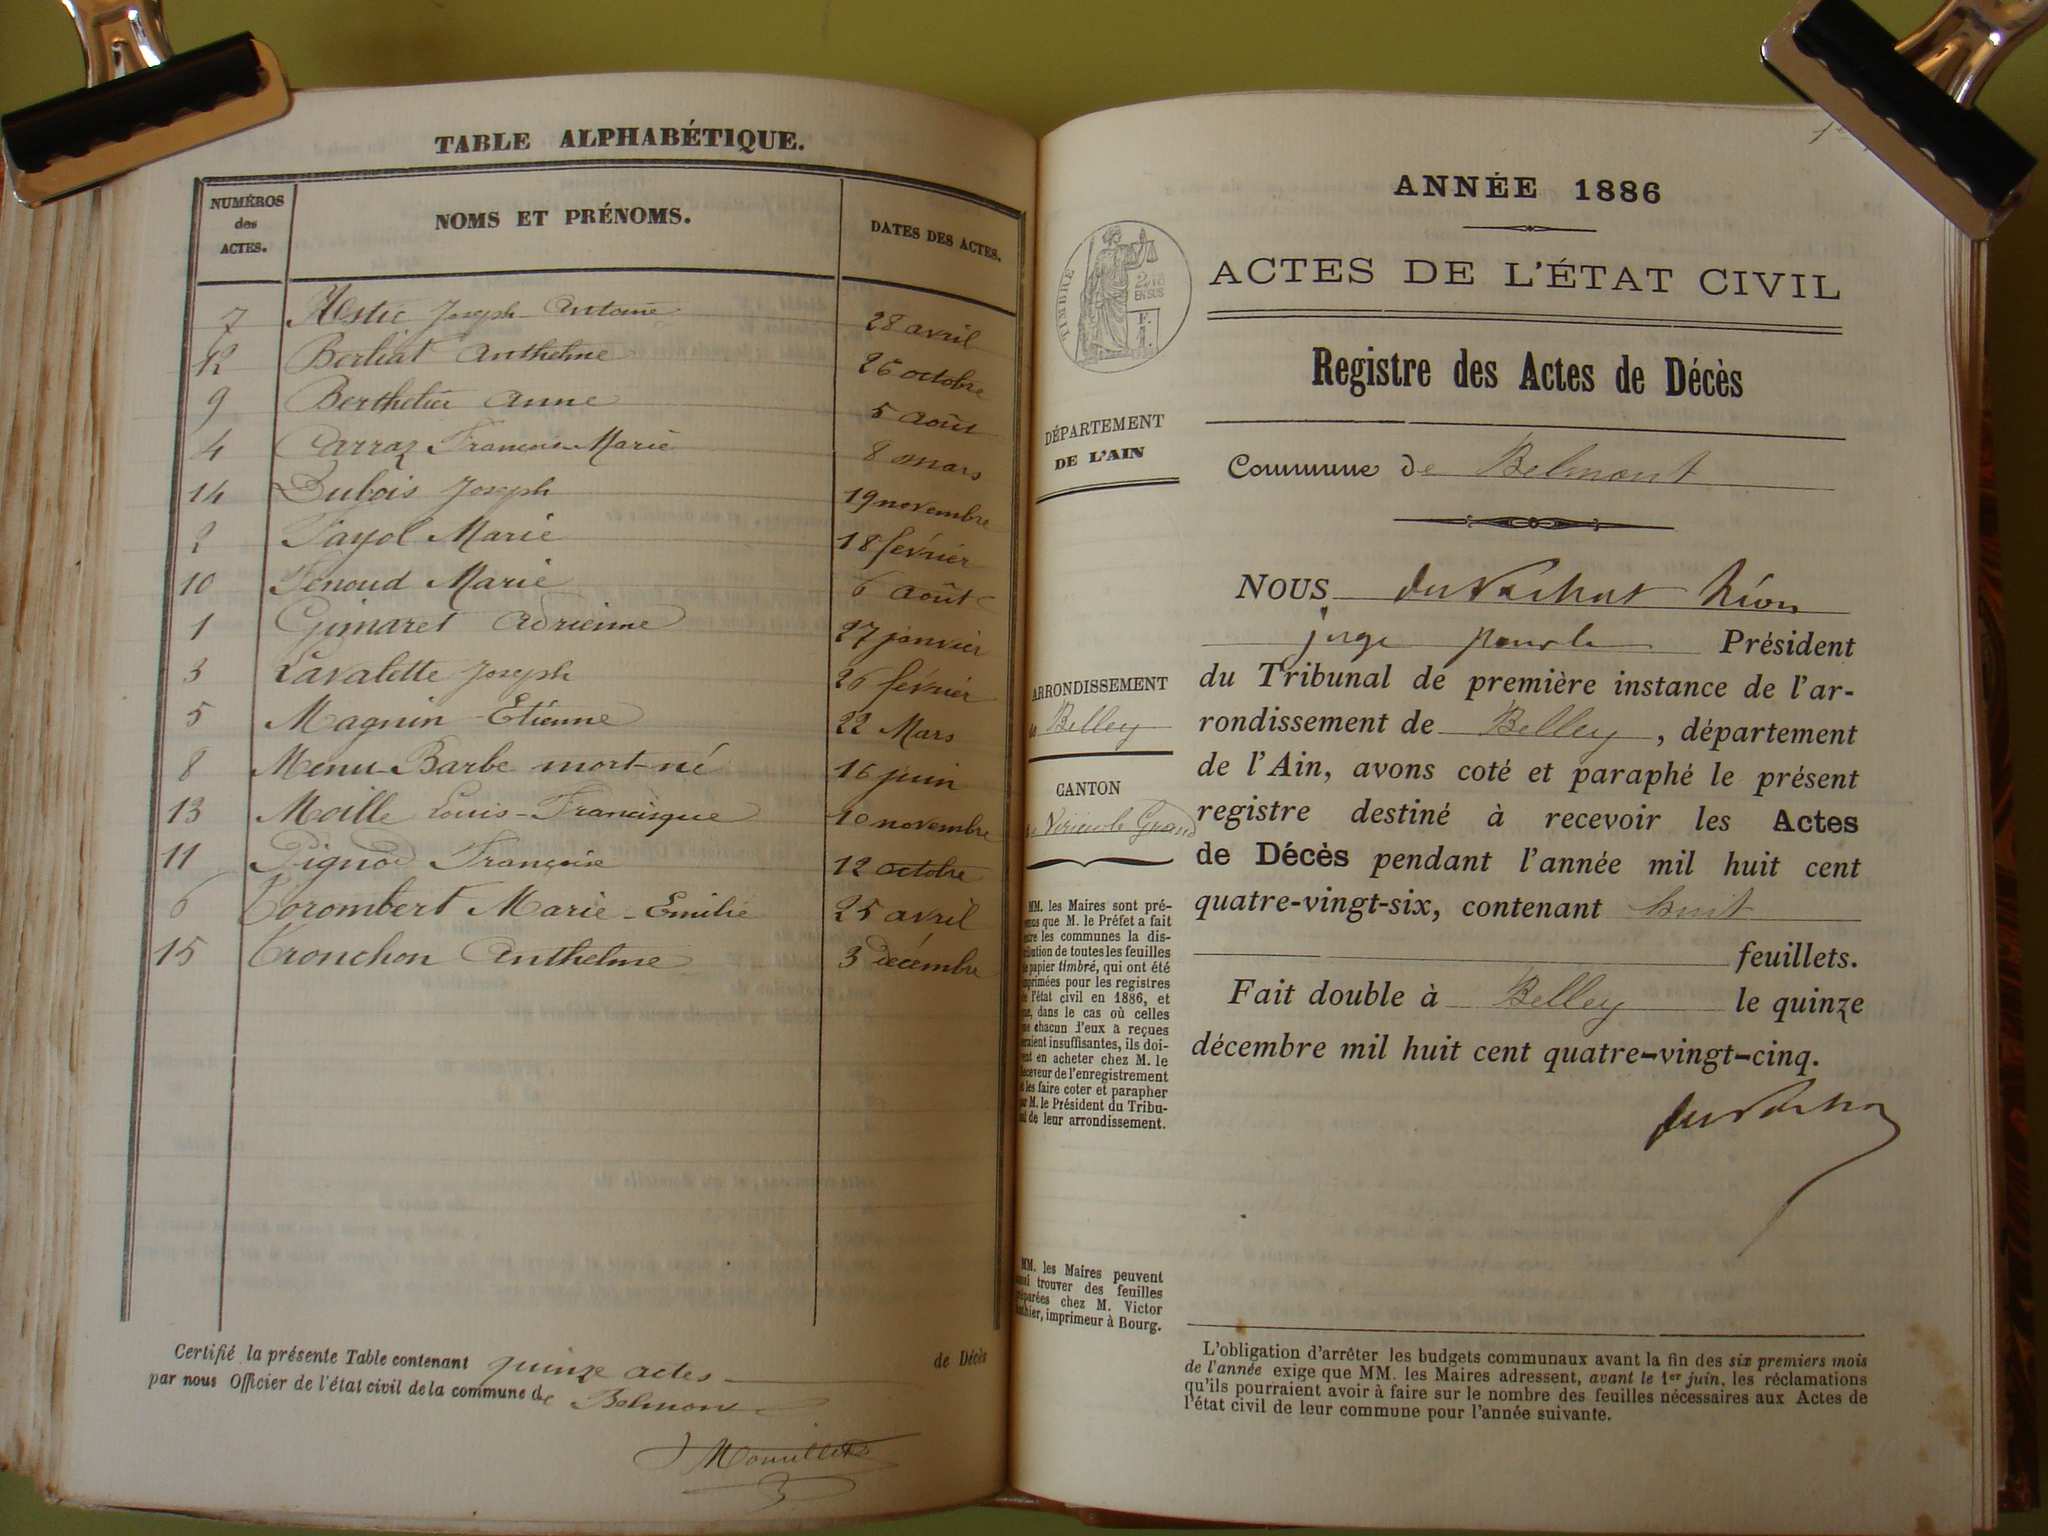 TABLE ALPHABÉTIQUE.
NUMÉROS des ACTES. NOMS ET PRÉNOMS. DATES DES ACTES.
7 Joseph Antoine 28 avril
12 Berliat Anthelme 26 octobre
9 Berthelier Anne 5 août
4 Carraz François-Marie 8 mars
14 Dubois Joseph 19 novembre
2 Fayol Marie 18 février
10 Fenoud Marie 6 août
1 Gimaret Adrienne 27 janvier
3 Lavalette Joseph 26 février
5 Magnin Etienne 22 Mars
8 Menu-Barbe mort-né 16 juin
13 Moille Louis-Francisque 10 novembre
11 Pignod Françoise 12 octobre
6 Corombert Marie-Emilie 25 avril
15 Cronchon Anthelme 3 décembre
Certifié la présente Table contenant quinze actes de Décès
par nous Officier de l'état civil de la commune de Belmont
ANNÉE 1886
ACTES DE L'ÉTAT CIVIL
TIMBRE
EN SUS
Registre des Actes de Décès
DÉPARTEMENT
DE L'AIN
Commune de Belmont
NOUS
juge pour le Président
du Tribunal de première instance de l'ar-
rondissement de Belley, département
de l'Ain, avons coté et paraphé le présent
registre destiné à recevoir les Actes
de Décès pendant l'année mil huit cent
quatre-vingt-six, contenant huit
feuillets.
Fait double à Belley le quinze
décembre mil huit cent quatre-vingt-cinq.
ARRONDISSEMENT
de Belley
CANTON
Virieu le Grand
MM. les Maires sont pré-
venus que M. le Préfet a fait
entre les communes la dis-
tribution de toutes les feuilles
de papier timbré, qui ont été
imprimées pour les registres
de l'état civil en 1886, et
que, dans le cas où celles
que chacun d'eux a reçues
seraient insuffisantes, ils doi-
vent en acheter chez M. le
Receveur de l'enregistrement
et les faire coter et parapher
par M. le Président du Tribu-
nal de leur arrondissement.
MM. les Maires peuvent
aussi trouver des feuilles
préparées chez M. Victor
imprimeur à Bourg.
L'obligation d'arrêter les budgets communaux avant la fin des six premiers mois
de l'année exige que MM. les Maires adressent, avant le 1er juin, les réclamations
qu'ils pourraient avoir à faire sur le nombre des feuilles nécessaires aux Actes de
l'état civil de leur commune pour l'année suivante.